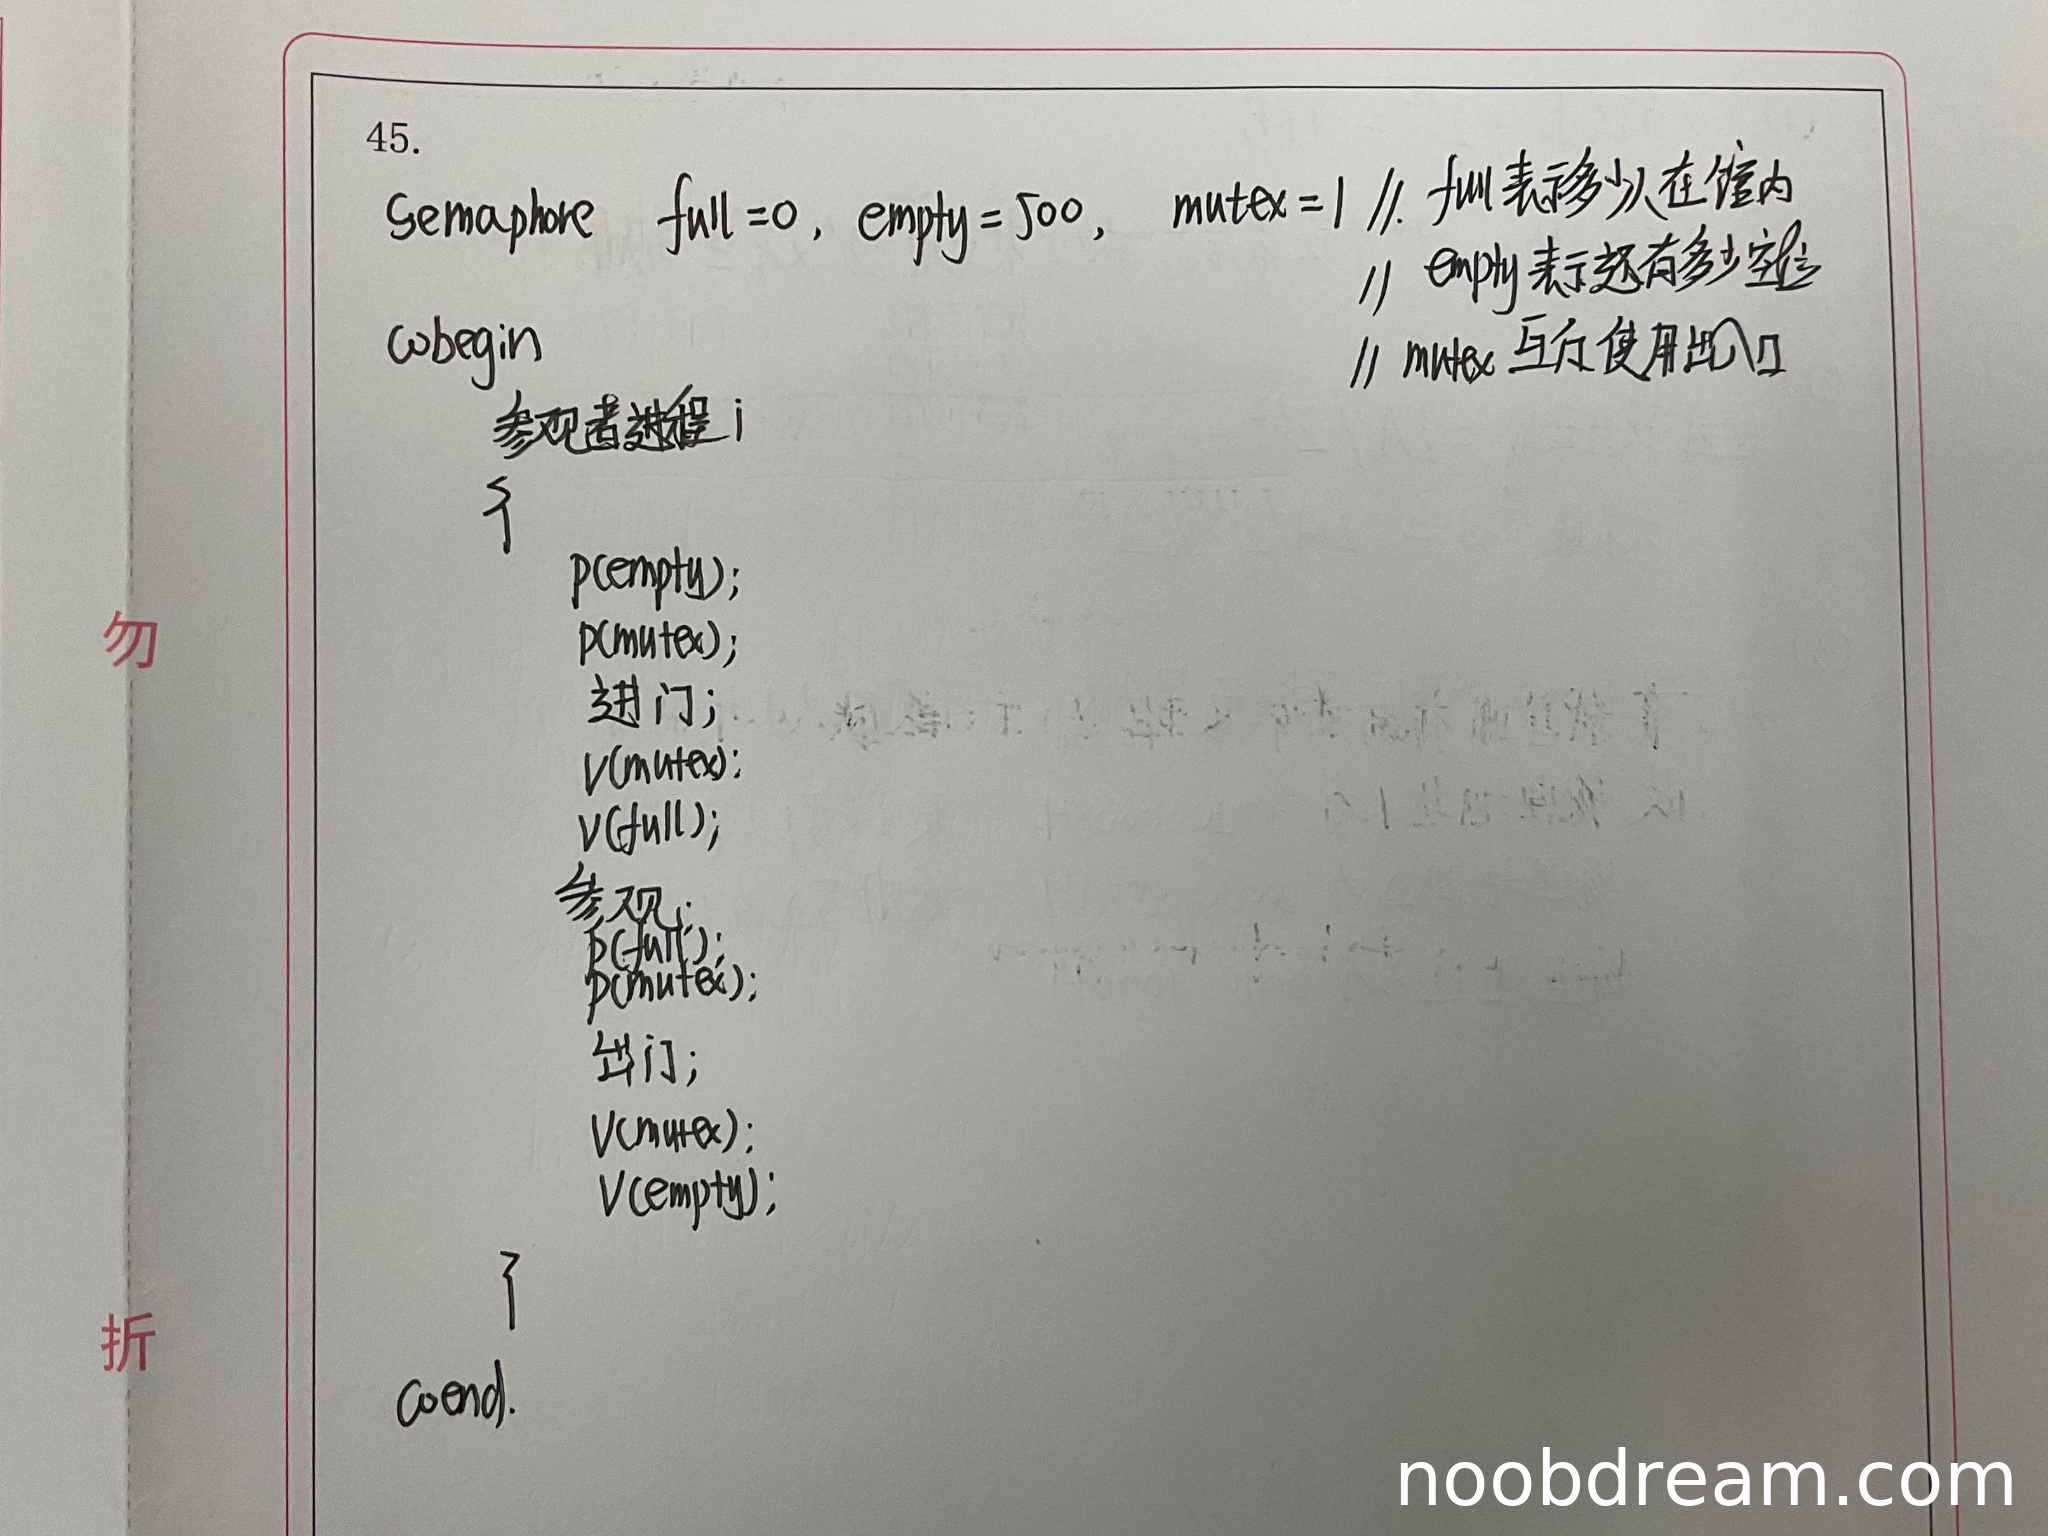 45.
Semaphore full=0, empty=500, mutex=1 // full表示多少人在馆内
// empty表示还有多少空位
// mutex 互斥使用出入口
cobegin
参观者进程 i
{
p(empty);
p(mutex);
进门;
V(mutex);
V(full);
参观;
p(full);
p(mutex);
出门;
V(mutex);
V(empty);
}
coend.
勿
折
noobdream.com